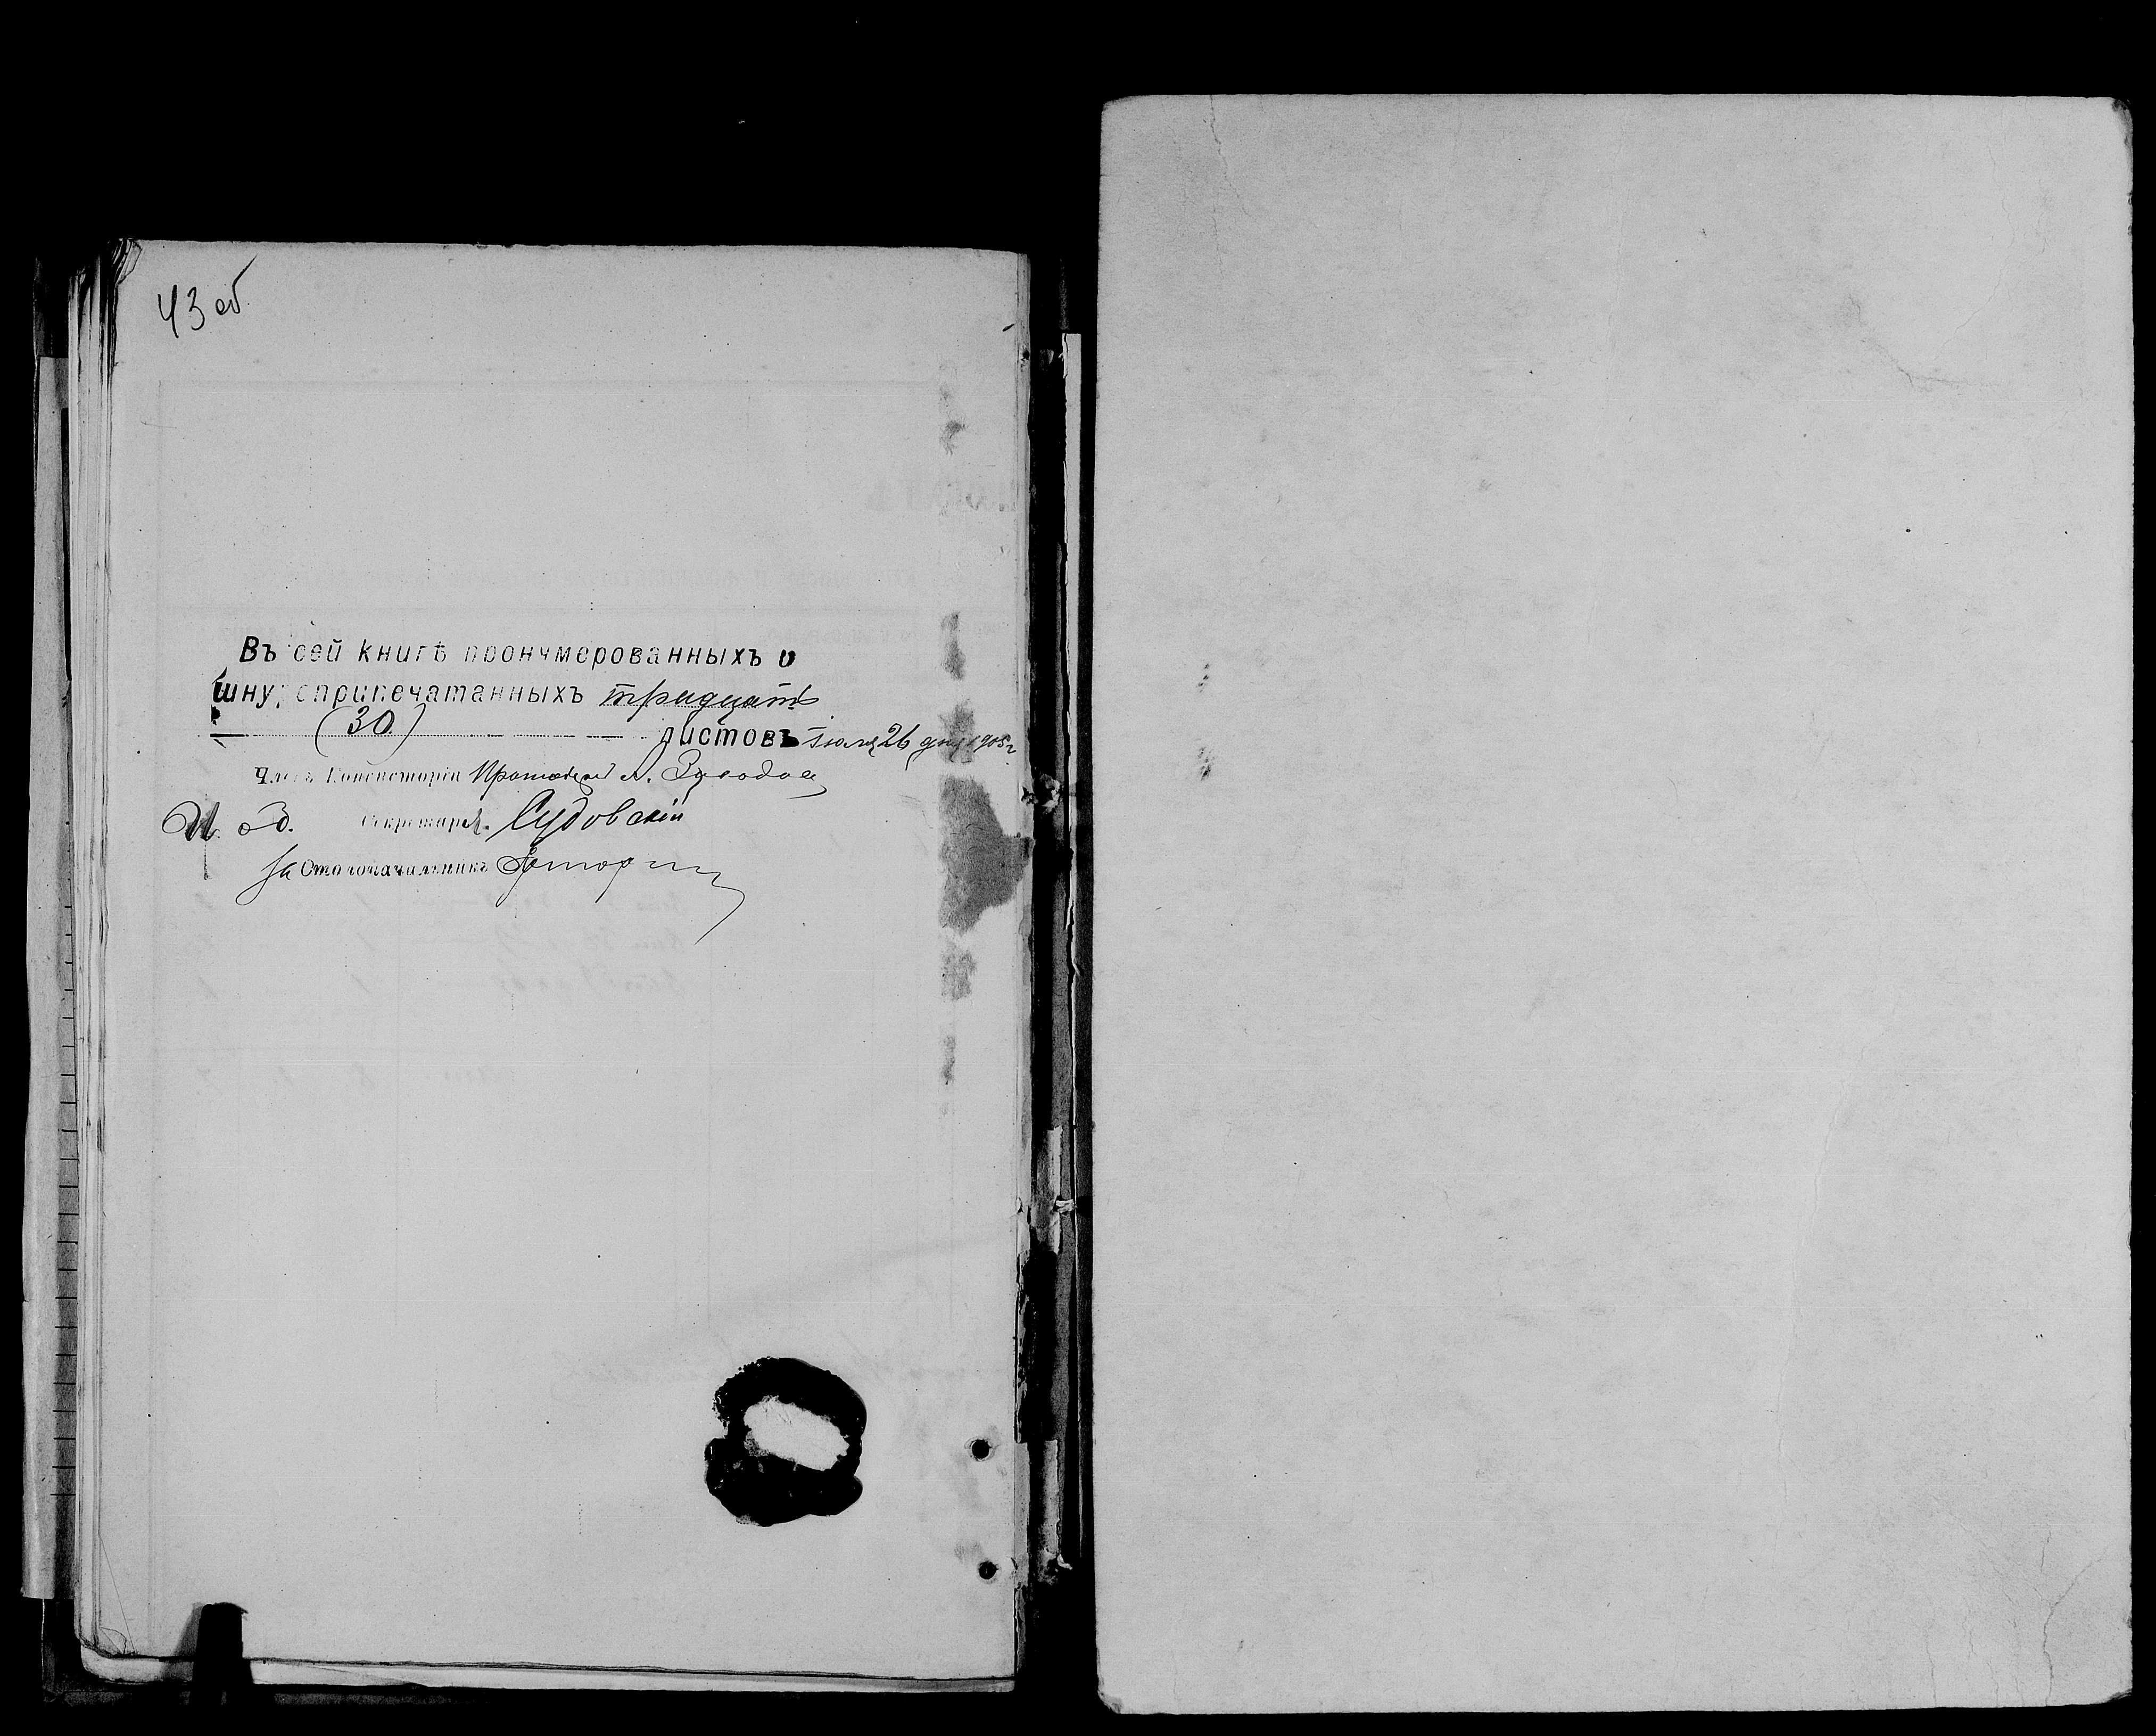 43 об
Въ сей книгѣ пронумерованныхъ и
шнуроприпечатанныхъ тридцать
(30) листовъ Іюля 26 дня 1905 г
Членъ Консисторіи Протоіерей
И. о д. Секретаря. Судовскій
За Столоначальникъ